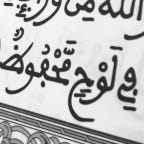 الله مِن وَرَا
فِي لَوْحٍ مَّحْفُوظٌ